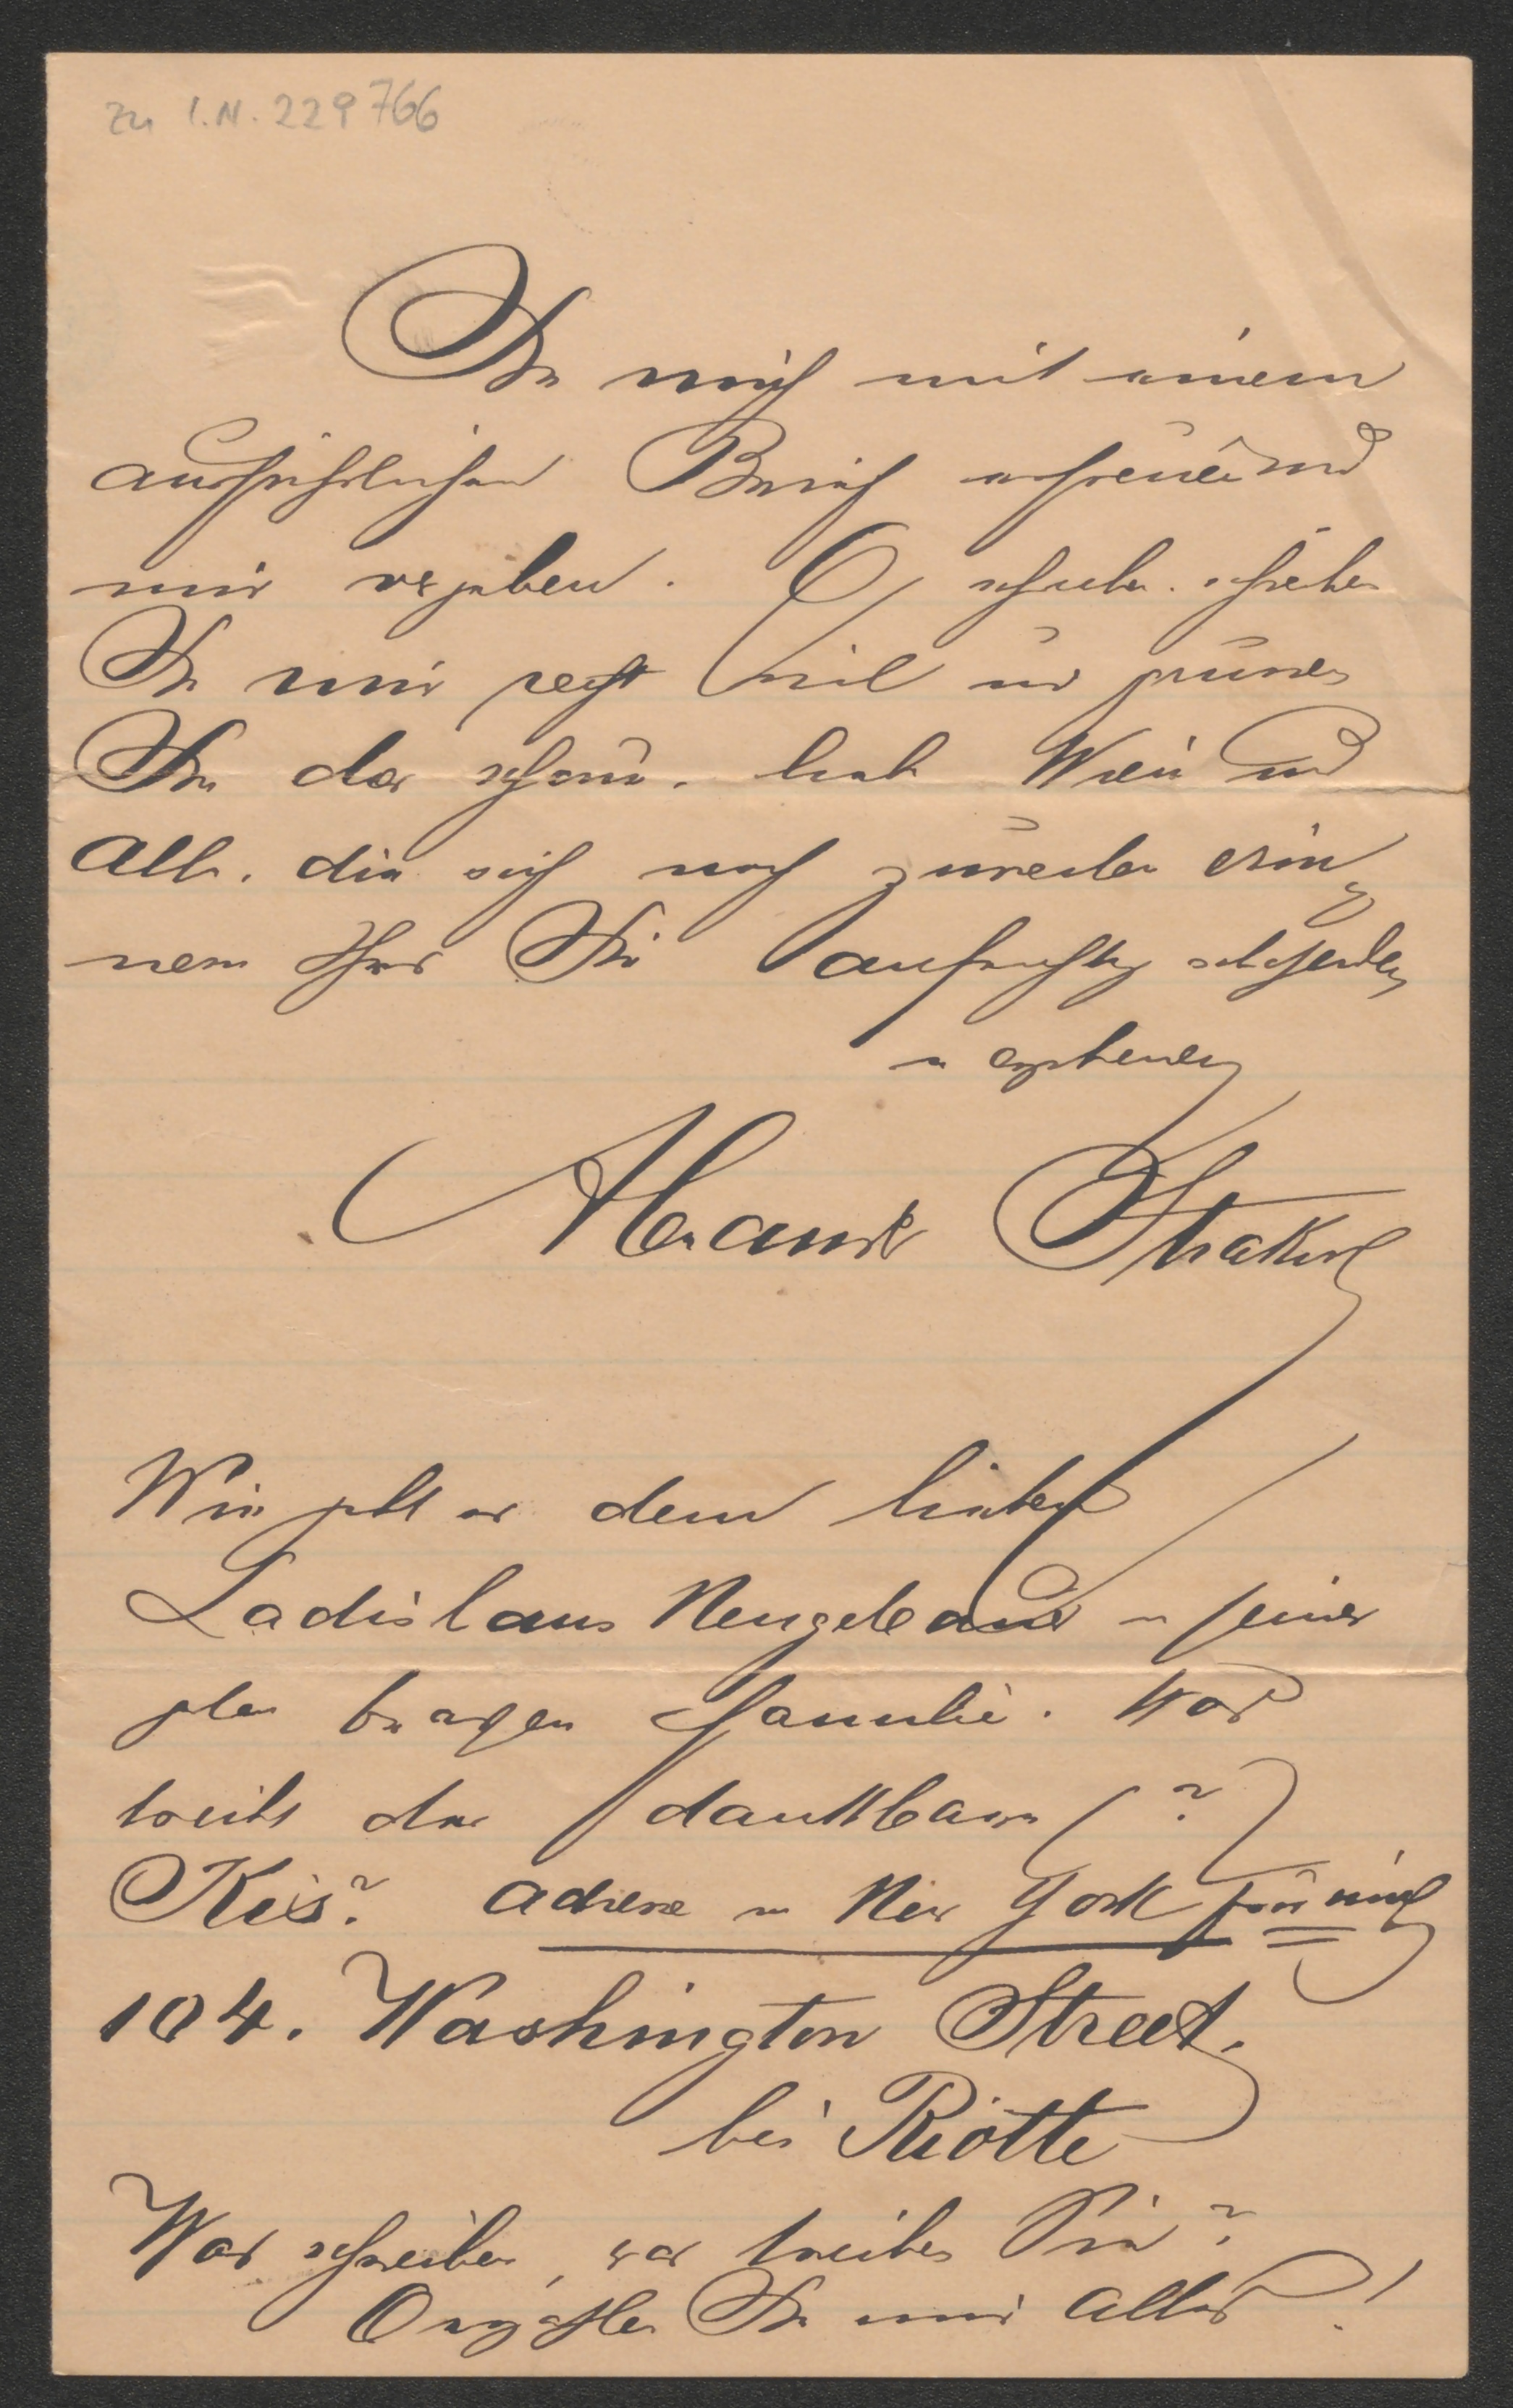 Zu I.N. 229766
Sie mich mit einem
ausführlichen Brief erfreuen und
mir vergeben. O, schreiben
Sie mir recht viel und grüßen
Sie das schöne, liebe Wien und
Alle, die sich noch zuweilen erin
nern Ihres Sie aufrichtig
u ergebenen
Alexander Strakosch
Wie geht es dem lieben
Ladislaus Neugebauer u seiner
Familie. Was
treibt der dankbare (?)
Kis? Adresse in New York für mich
104. Washington Street.
bei Riotte
Was schreiben, was treiben Sie?
Erzählen Sie mir Alles!